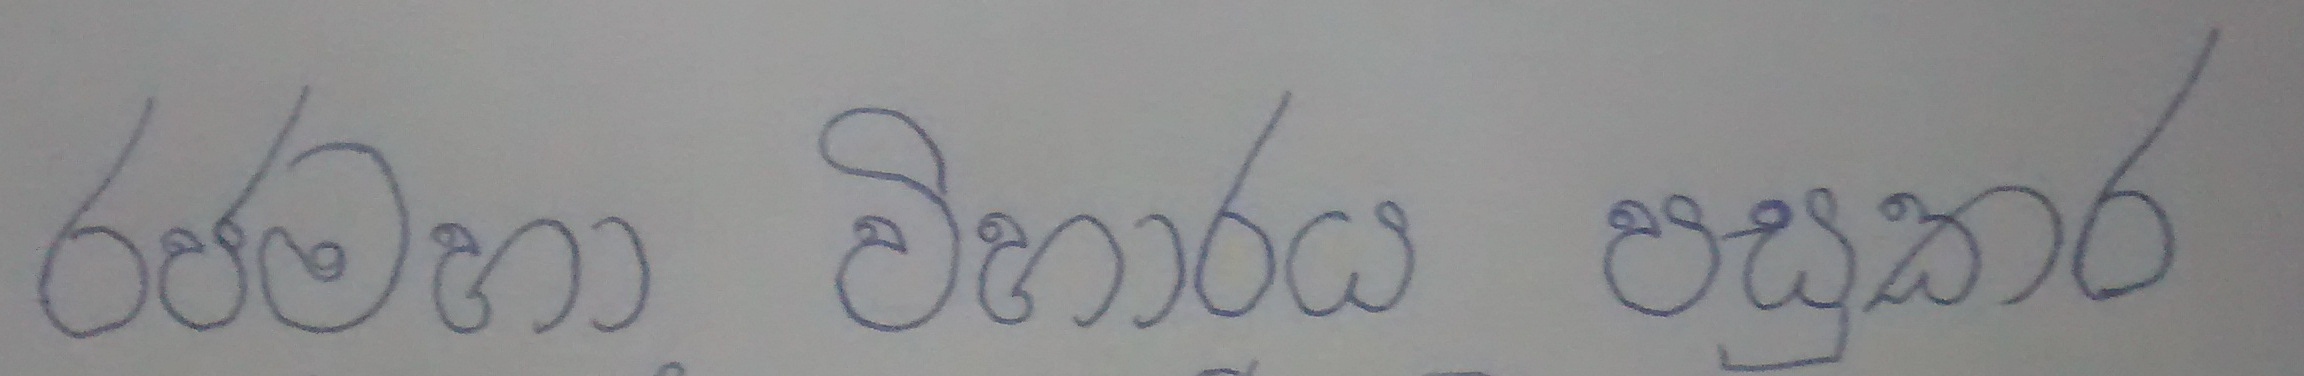 රජමහා විහාරය පසුකර